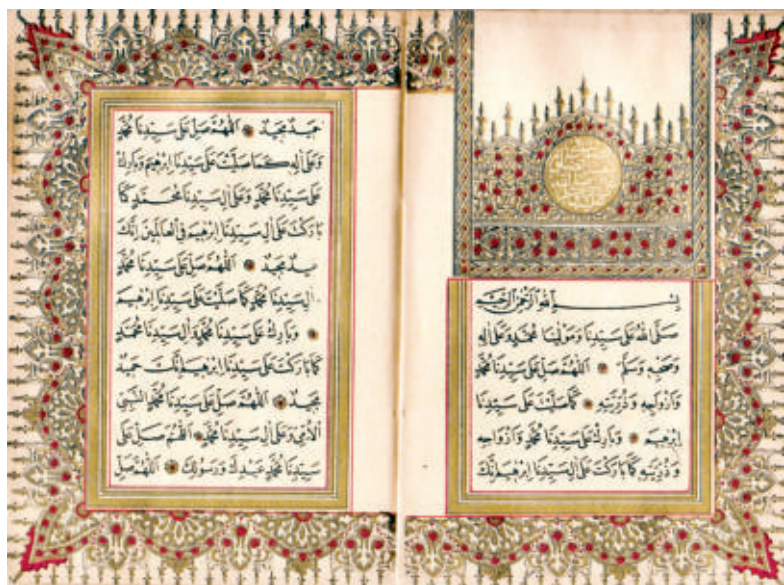 بسم الله الرحمن الرحيم
صَلَّى اللهُ عَلَى سَيِّدِنَا وَمَوْلَينَا مُحَمَّدٍ وَعَلَى اٰلِهِ
وَصَحْبِهِ وَسَلَّمَ اَللّٰهُمَّ صَلِّ عَلَى سَيِّدِنَا مُحَمَّدٍ
وَاَزْوَاجِهِ وَذُرِّيَّتِهِ كَمَا صَلَّيْتَ عَلَى سَيِّدِنَا
اِبْرٰهِيمَ وَبَارِكْ عَلَى سَيِّدِنَا مُحَمَّدٍ وَاَزْوَاجِهِ
وَذُرِّيَّتِهِ كَمَا بَارَكْتَ عَلَى اٰلِ سَيِّدِنَا اِبْرٰهِيمَ اِنَّكَ
حَمِيدٌ مَجِيدٌ اَللّٰهُمَّ صَلِّ عَلَى سَيِّدِنَا مُحَمَّدٍ
وَعَلَى اٰلِهِ كَمَا صَلَّيْتَ عَلَى سَيِّدِنَا اِبْرٰهِيمَ وَبَارِكْ
عَلَى سَيِّدِنَا مُحَمَّدٍ وَعَلَى اٰلِ سَيِّدِنَا مُحَمَّدٍ كَمَا
بَارَكْتَ عَلَى اٰلِ سَيِّدِنَا اِبْرٰهِيمَ فِى الْعَالَمِينَ اِنَّكَ
مَجِيدٌ اَللّٰهُمَّ صَلِّ عَلَى سَيِّدِنَا مُحَمَّدٍ
اٰلِ سَيِّدِنَا مُحَمَّدٍ كَمَا صَلَّيْتَ عَلَى سَيِّدِنَا اِبْرٰهِيمَ
وَبَارِكْ عَلَى سَيِّدِنَا مُحَمَّدٍ وَاٰلِ سَيِّدِنَا مُحَمَّدٍ
كَمَا بَارَكْتَ عَلَى سَيِّدِنَا اِبْرٰهِيمَ اِنَّكَ حَمِيدٌ
مَجِيدٌ اَللّٰهُمَّ صَلِّ عَلَى سَيِّدِنَا مُحَمَّدٍ النَّبِىِّ
الْاُمِّىِّ وَعَلَى اٰلِ سَيِّدِنَا مُحَمَّدٍ اَللّٰهُمَّ صَلِّ عَلَى
سَيِّدِنَا مُحَمَّدٍ عَبْدِكَ وَرَسُولِكَ اَللّٰهُمَّ صَلِّ